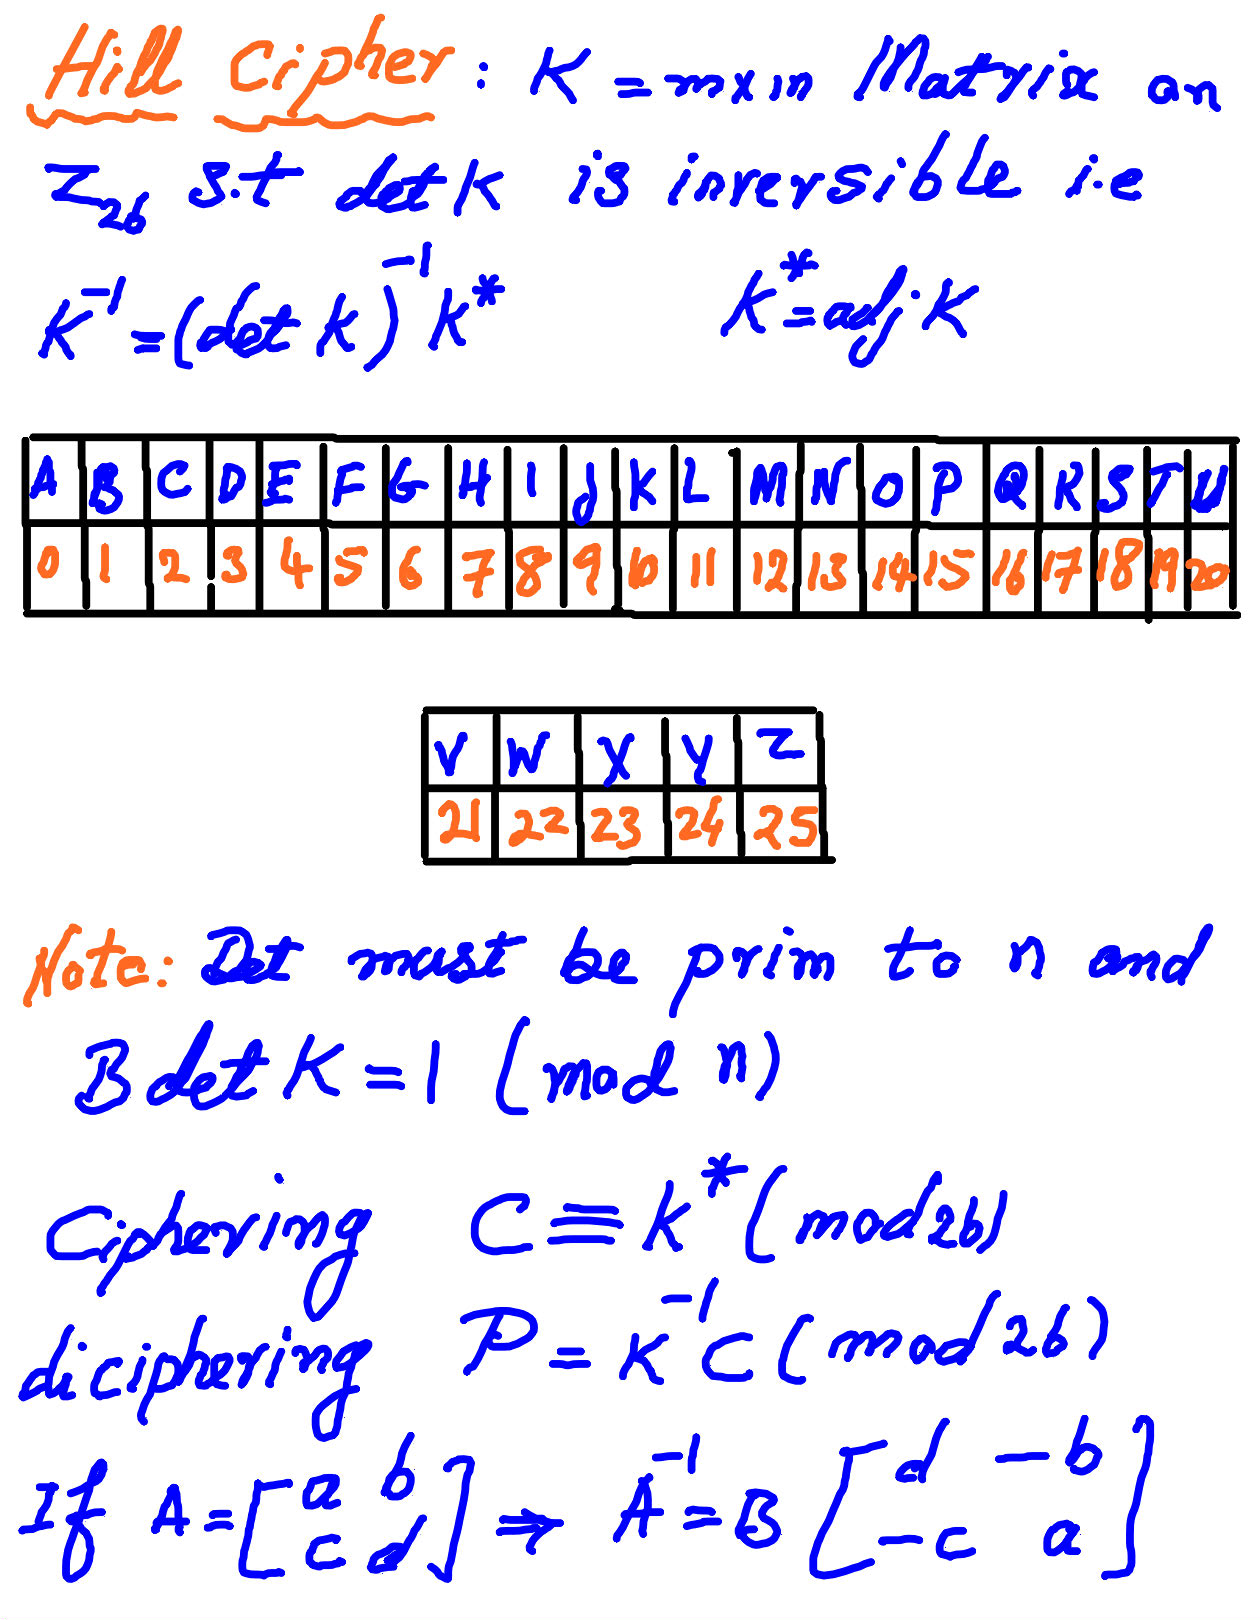 Hill Cipher : K = mxm Matrix on
Z26 s.t det K is inversible i.e
K^-1 = (det K)^-1 K^* K^* = adj K
A B C D E F G H I J K L M N O P Q R S T U
0 1 2 3 4 5 6 7 8 9 10 11 12 13 14 15 16 17 18 19 20
V W X Y Z
21 22 23 24 25
Note: Det must be prim to n and
B det K = 1 (mod n)
Ciphering C ≡ K^* (mod 26)
diciphering P = K^-1 C (mod 26)
If A = [a b ⇒ A^-1 = B [d -b
c d] -c a]